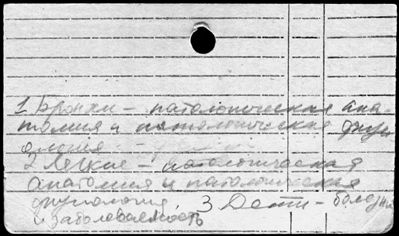 1 Бронхи - патологическая ана-
томия и патологическая физи
ология
2 Легкие - патологическая
анатомия и патологическая
физиология, 3 Дети - болезни
и заболеваемость